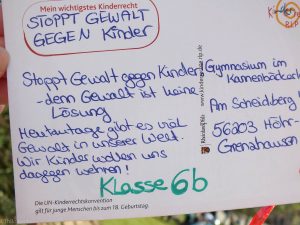 Mein wichtigstes Kinderrecht
STOPPT GEWALT
GEGEN Kinder
Stoppt Gewalt gegen Kinder
-denn Gewalt ist keine
Lösung
Heutzutage gibt es viel
Gewalt in unserer Welt.
Wir Kinder wollen uns
dagegen wehren!
Klasse 6b
Die UN-Kinderrechtskonvention
gilt für junge Menschen bis zum 18. Geburtstag.
Gymnasium im
Kannenbäckerland
Am Scheidberg
56203 Höhr-
Grenzhausen
RheinlandPfalz